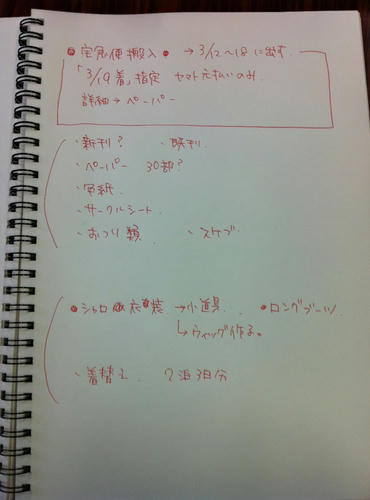 宅急便搬入 → 3/12～18に出す.
「3/19着」指定 ヤマト元払いのみ.
詳細→ペーパー
・新刊? ・既刊.
・ペーパー 30部?
・色紙.
・サークルシート.
・おつり類 ・スケブ.
・シャロ 衣装 →小道具. ・ロングブーツ
↳ウィッグ作る。
・着替え. 2泊3日分